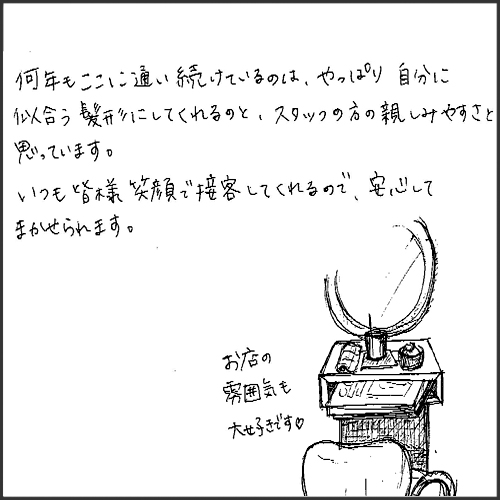 何年もここに通い続けているのは、やっぱり自分に
似合う髪形にしてくれるのと、スタッフの方の親しみやすさと
思っています。
いつも皆様笑顔で接客してくれるので、安心して
まかせられます。
お店の
雰囲気も
大好きです♡